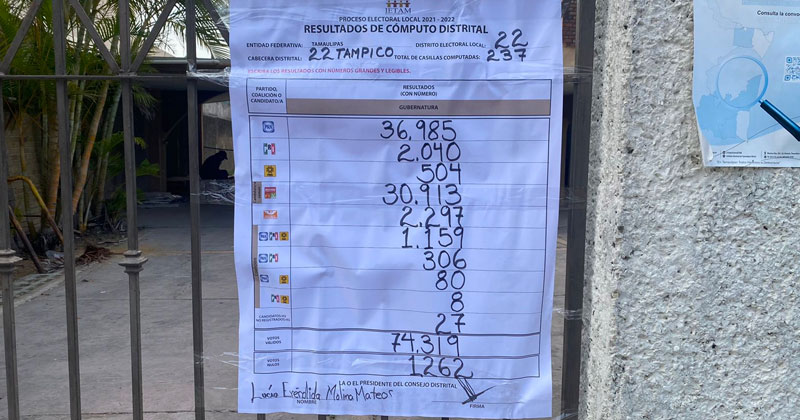 IETAM
PROCESO ELECTORAL LOCAL 2021 - 2022
RESULTADOS DE CÓMPUTO DISTRITAL
ENTIDAD FEDERATIVA: TAMAULIPAS DISTRITO ELECTORAL LOCAL: 22
CABECERA DISTRITAL: 22 TAMPICO TOTAL DE CASILLAS COMPUTADAS: 237
ESCRIBA LOS RESULTADOS CON NÚMEROS GRANDES Y LEGIBLES.
PARTIDO, COALICIÓN O CANDIDATO/A
RESULTADOS (CON NÚMERO)
GUBERNATURA
PAN 36,985
PRI 2.040
504
30.913
2.297
PAN PRI 1.159
PAN PRI 306
PAN 80
PRI 8
CANDIDATOS/AS NO REGISTRADOS/AS 27
VOTOS VÁLIDOS 74.319
VOTOS NULOS 1262
LA O EL PRESIDENTE DEL CONSEJO DISTRITAL
Molina Mateos
NOMBRE FIRMA
Consulta la